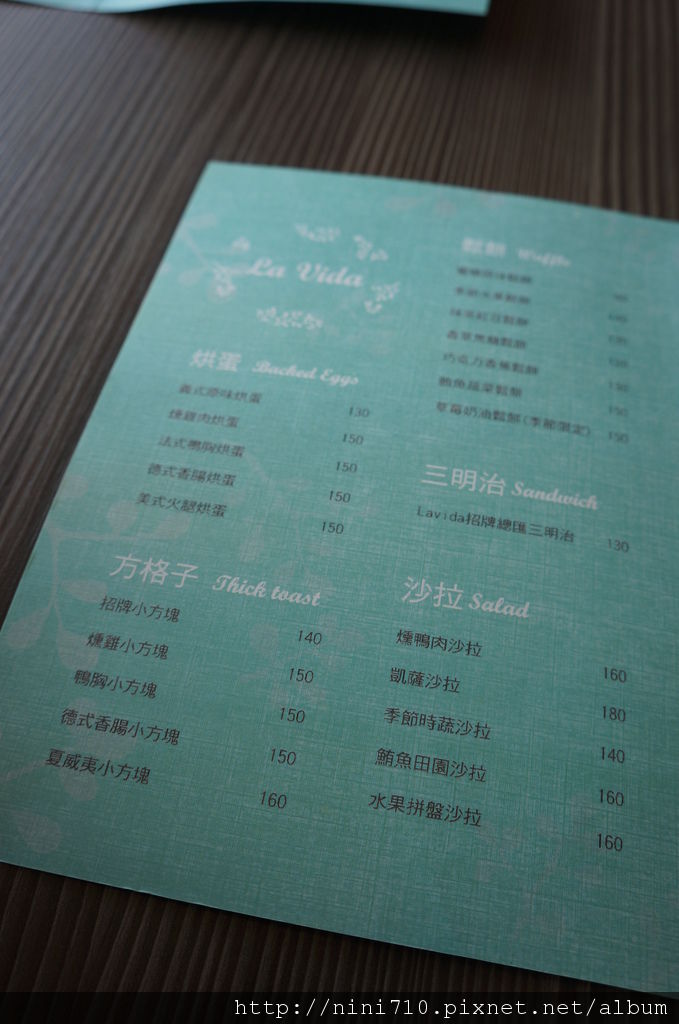 La Vida
烘蛋 Backed Eggs
義式原味烘蛋 130
燻雞肉烘蛋 150
法式鴨胸烘蛋 150
德式香腸烘蛋 150
美式火腿烘蛋 150
方格子 Thick toast
招牌小方塊 140
燻雞小方塊 150
鴨胸小方塊 150
德式香腸小方塊 150
夏威夷小方塊 160
鬆餅 Waffle
抹茶紅豆鬆餅
巧克力香蕉鬆餅 150
鮪魚蔬菜鬆餅 150
草莓奶油鬆餅(季節限定) 150
三明治 Sandwich
Lavida招牌總匯三明治 130
沙拉 Salad
燻鴨肉沙拉 160
凱薩沙拉 180
季節時蔬沙拉 140
鮪魚田園沙拉 160
水果拼盤沙拉 160
http://nini710.pixnet.net/album